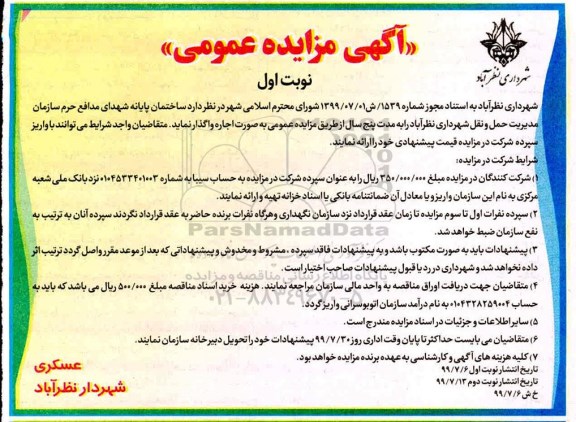 «آگهی مزایده عمومی»
نوبت اول
شهرداری نظرآباد
شهرداری نظرآباد به استناد مجوز شماره ۱۵۳۹/ش ۱۳۹۹/۰۷/۰۱ شورای محترم اسلامی شهر در نظر دارد ساختمان پایانه شهدای مدافع حرم سازمان
مدیریت حمل و نقل شهرداری نظرآباد را به مدت پنج سال از طریق مزایده عمومی به صورت اجاره واگذار نماید. متقاضیان واجد شرایط می توانند با واریز
سپرده شرکت در مزایده قیمت پیشنهادی خود را ارائه نمایند.
شرایط شرکت در مزایده:
۱) شرکت کنندگان در مزایده مبلغ ۳۵۰/۰۰۰/۰۰۰ ریال را به عنوان سپرده شرکت در مزایده به حساب سیبا به شماره ۰۱۰۴۵۳۳۴۰۱۰۰۳ نزد بانک ملی شعبه
مرکزی به نام این سازمان واریز و یا معادل آن ضمانتنامه بانکی یا اسناد خزانه تهیه و ارائه نمایند.
۲) سپرده نفرات اول تا سوم مزایده تا زمان عقد قرارداد نزد سازمان نگهداری و هرگاه نفرات برنده حاضر به عقد قرارداد نگردند سپرده آنان به ترتیب به
نفع سازمان ضبط خواهد شد.
۳) پیشنهادات باید به صورت مکتوب باشد و به پیشنهادات فاقد سپرده ، مشروط و مخدوش و پیشنهاداتی که بعد از موعد مقرر واصل گردد ترتیب اثر
داده نخواهد شد و شهرداری در رد یا قبول پیشنهادات صاحب اختیار است.
۴) متقاضیان جهت دریافت اوراق مناقصه به واحد مالی سازمان مراجعه نمایند. هزینه خرید اسناد مناقصه مبلغ ۵۰۰/۰۰۰ ریال می باشد که باید به
حساب ۰۱۰۴۳۲۸۲۵۹۰۰۴ به نام درآمد سازمان اتوبوسرانی واریز گردد.
۵) سایر اطلاعات و جزئیات در اسناد مزایده مندرج است.
۶) متقاضیان می بایست حداکثر تا پایان وقت اداری روز ۹۹/۷/۳۰ پیشنهادات خود را تحویل دبیرخانه سازمان نمایند.
۷) کلیه هزینه های آگهی و کارشناسی به عهده برنده مزایده خواهد بود.
تاریخ انتشار نوبت اول ۹۹/۷/۶
تاریخ انتشار نوبت دوم ۹۹/۷/۱۳
خ ش ۹۹/۷/۶
عسکری
شهردار نظرآباد
ParsNamadData
پایگاه اطلاع رسانی مناقصه و مزایده
۰۲۱-۸۸۳۴۹۶۷۰-۵